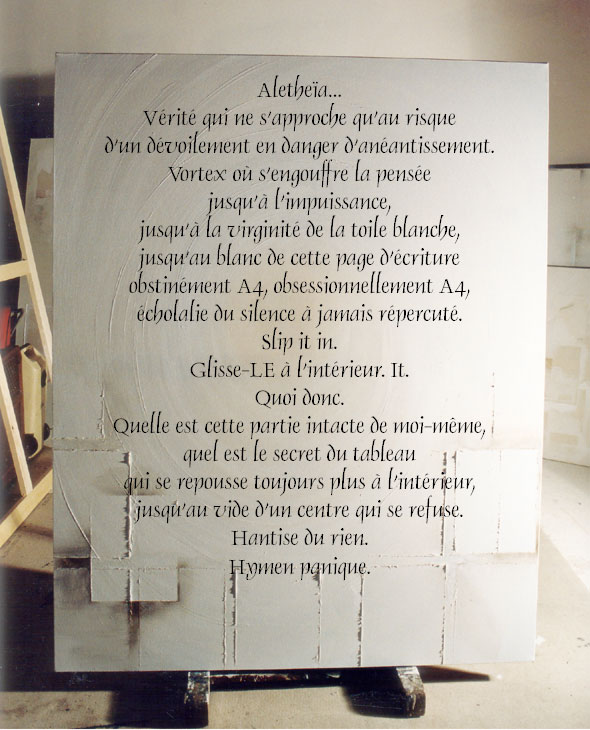 Aletheïa...
Vérité qui ne s'approche qu'au risque
d'un dévoilement en danger d'anéantissement.
Vortex où s'engouffre la pensée
jusqu'à l'impuissance,
jusqu'à la virginité de la toile blanche,
jusqu'au blanc de cette page d'écriture
obstinément A4, obsessionnellement A4,
écholalie du silence à jamais répercuté.
Slip it in.
Glisse-LE à l'intérieur. It.
Quoi donc.
Quelle est cette partie intacte de moi-même,
quel est le secret du tableau
qui se repousse toujours plus à l'intérieur,
jusqu'au vide d'un centre qui se refuse.
Hantise du rien.
Hymen panique.